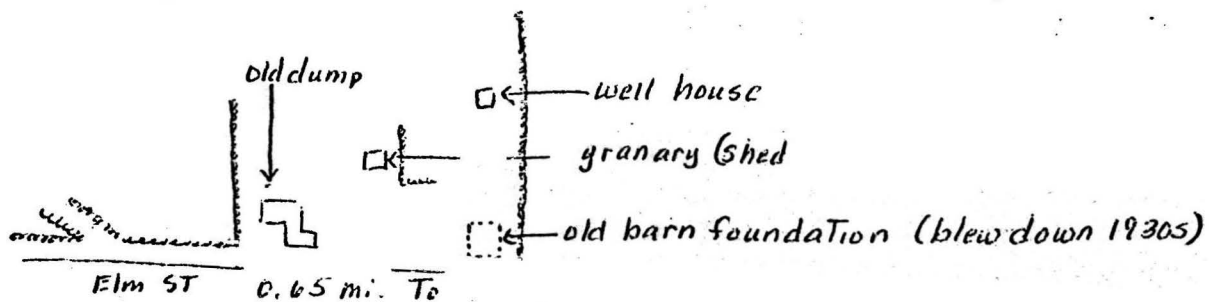 old dump
well house
granary (shed
old barn foundation (blew down 1930s)
Elm ST 0.65 mi. To